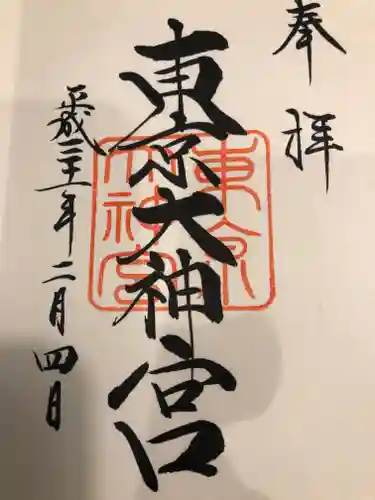 奉拝
東京大神宮
東京
大神宮
平成三十一年二月四日